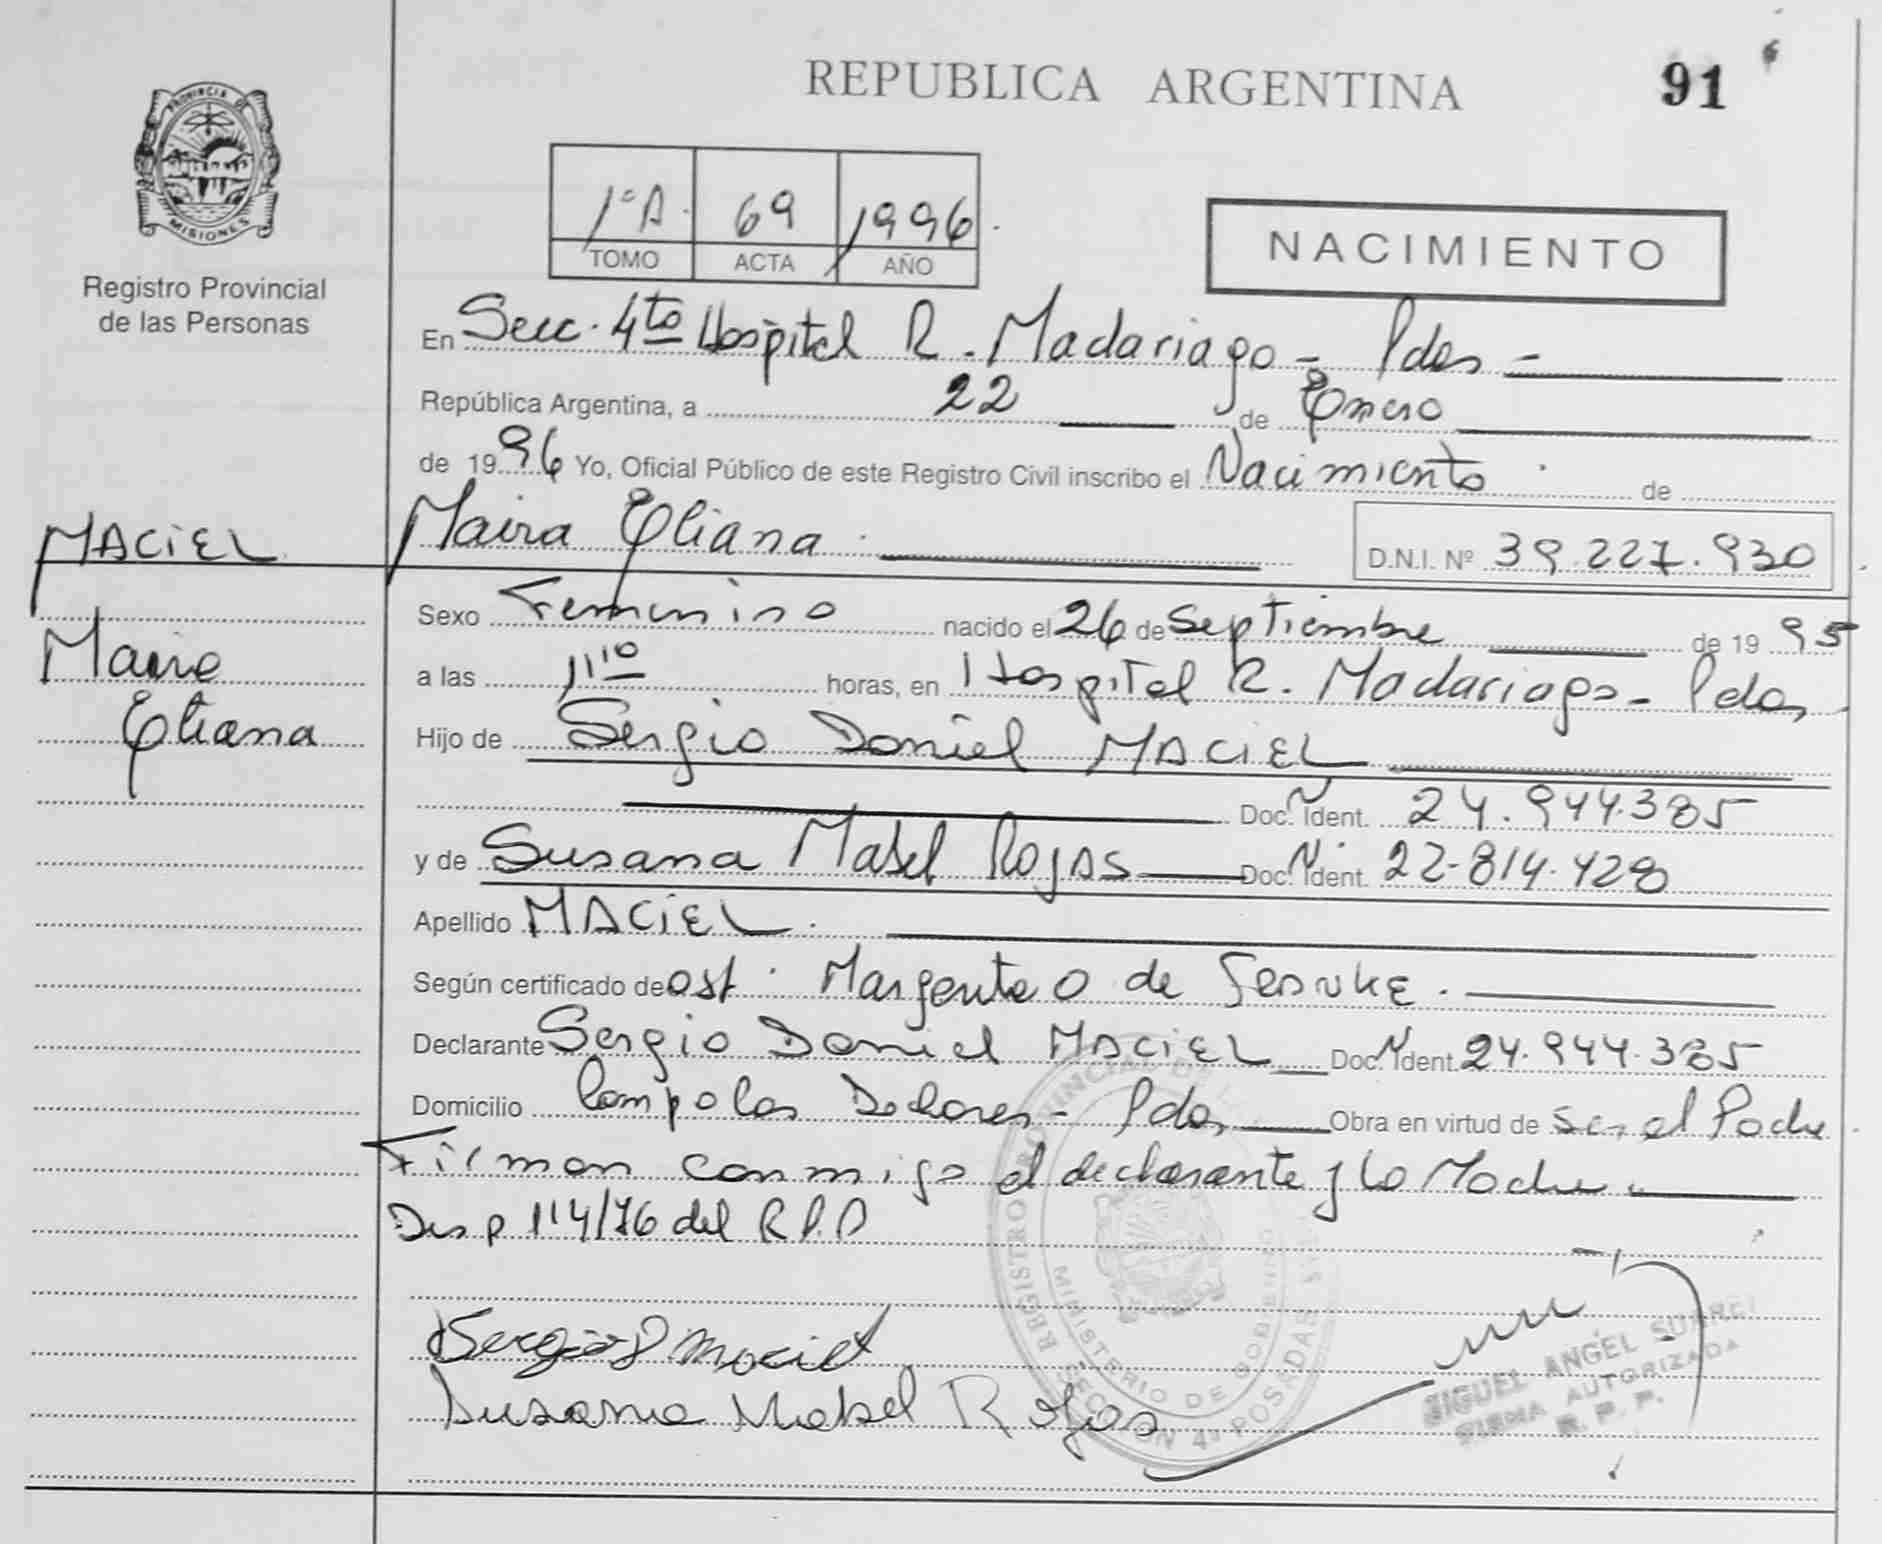 REPUBLICA ARGENTINA
91
PROVINCIA DE
MISIONES
Registro Provincial
de las Personas
1º A. 69 1996
TOMO ACTA AÑO
NACIMIENTO
En Secc. 4to Hospital R. Madariaga - Pdas -
República Argentina, a 22 de Enero
de 1996 Yo, Oficial Público de este Registro Civil inscribo el Nacimiento de
MACIEL Maira Eliana D.N.I. Nº 39.227.930
Maira
Eliana
Sexo Femenino nacido el 26 de Septiembre de 1995
a las 11'10 horas, en Hospital R. Madariaga - Pdas
Hijo de Sergio Daniel MACIEL
Doc. Ident. 24.944.385
y de Susana Mabel Rojas Doc. Ident. 22.814.428
Apellido MACIEL.
Según certificado de Ost. Margarita O de
Declarante Sergio Daniel MACIEL Doc. Ident. 24.944.385
Domicilio Dolores - Pdas Obra en virtud de Ser el Padre
Firman conmigo el declarante y la Madre
Disp 114/76 del R.P.P
Sergio D Maciel
Susana Mabel Rojas
REGISTRO PROVINCIAL DE
MINISTERIO DE GOBIERNO
SECCION 4º POSADAS
MIGUEL ANGEL SUAREZ
FIRMA AUTORIZADA
R. P. P.